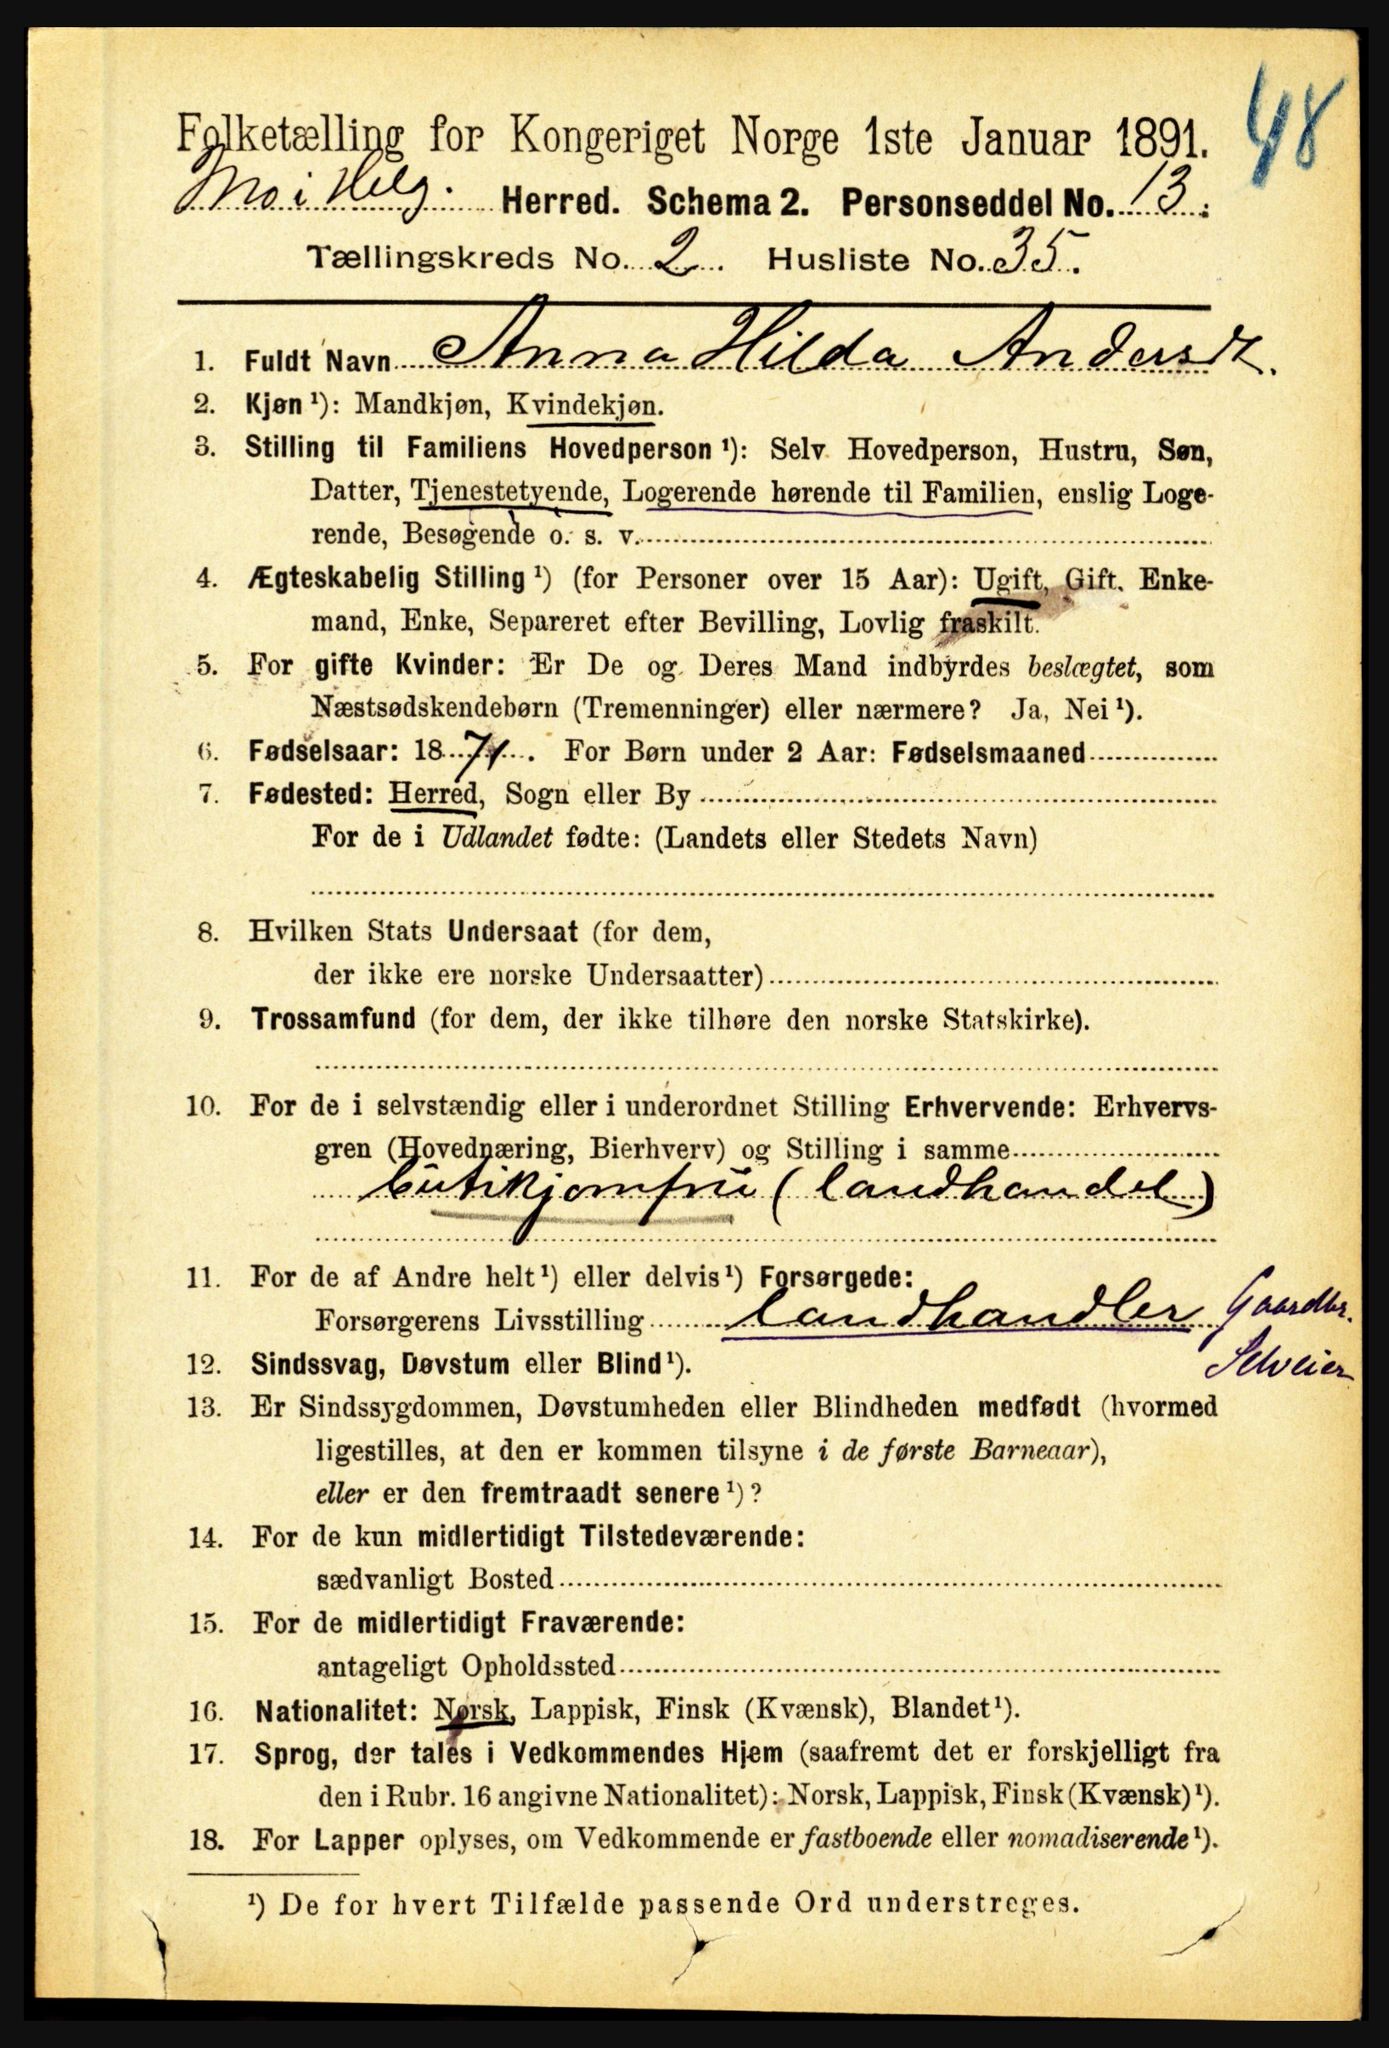 48
Folketælling for Kongeriget Norge 1ste Januar 1891.
Mo i Helg. Herred. Schema 2. Personseddel No. 13.
Tællingskreds No. 2. Husliste No. 35.
1. Fuldt Navn Anna Hilda Andersdt.
2. Kjøn¹): Mandkjøn, Kvindekjøn.
3. Stilling til Familiens Hovedperson¹): Selv Hovedperson, Hustru, Søn,
Datter, Tjenestetyende, Logerende hørende til Familien, enslig Loge-
rende, Besøgende o. s. v.
4. Ægteskabelig Stilling¹) (for Personer over 15 Aar): Ugift, Gift, Enke-
mand, Enke, Separeret efter Bevilling, Lovlig fraskilt.
5. For gifte Kvinder: Er De og Deres Mand indbyrdes beslægtet, som
Næstsødskendebørn (Tremenninger) eller nærmere? Ja, Nei¹).
6. Fødselsaar: 1871. For Børn under 2 Aar: Fødselsmaaned
7. Fødested: Herred, Sogn eller By
For de i Udlandet fødte: (Landets eller Stedets Navn)
8. Hvilken Stats Undersaat (for dem,
der ikke ere norske Undersaatter)
9. Trossamfund (for dem, der ikke tilhøre den norske Statskirke).
10. For de i selvstændig eller i underordnet Stilling Erhvervende: Erhvervs-
gren (Hovednæring, Bierhverv) og Stilling i samme
butikjomfru (landhandel)
11. For de af Andre helt¹) eller delvis¹) Forsørgede:
Forsørgerens Livsstilling landhandler Gaardbr.
Selveier
12. Sindssvag, Døvstum eller Blind¹).
13. Er Sindssygdommen, Døvstumheden eller Blindheden medfødt (hvormed
ligestilles, at den er kommen tilsyne i de første Barneaar),
eller er den fremtraadt senere¹)?
14. For de kun midlertidigt Tilstedeværende:
sædvanligt Bosted
15. For de midlertidigt Fraværende:
antageligt Opholdssted
16. Nationalitet: Norsk, Lappisk, Finsk (Kvænsk), Blandet¹).
17. Sprog, der tales i Vedkommendes Hjem (saafremt det er forskjelligt fra
den i Rubr. 16 angivne Nationalitet): Norsk, Lappisk, Finsk (Kvænsk)¹).
18. For Lapper oplyses, om Vedkommende er fastboende eller nomadiserende¹).
¹) De for hvert Tilfælde passende Ord understreges.